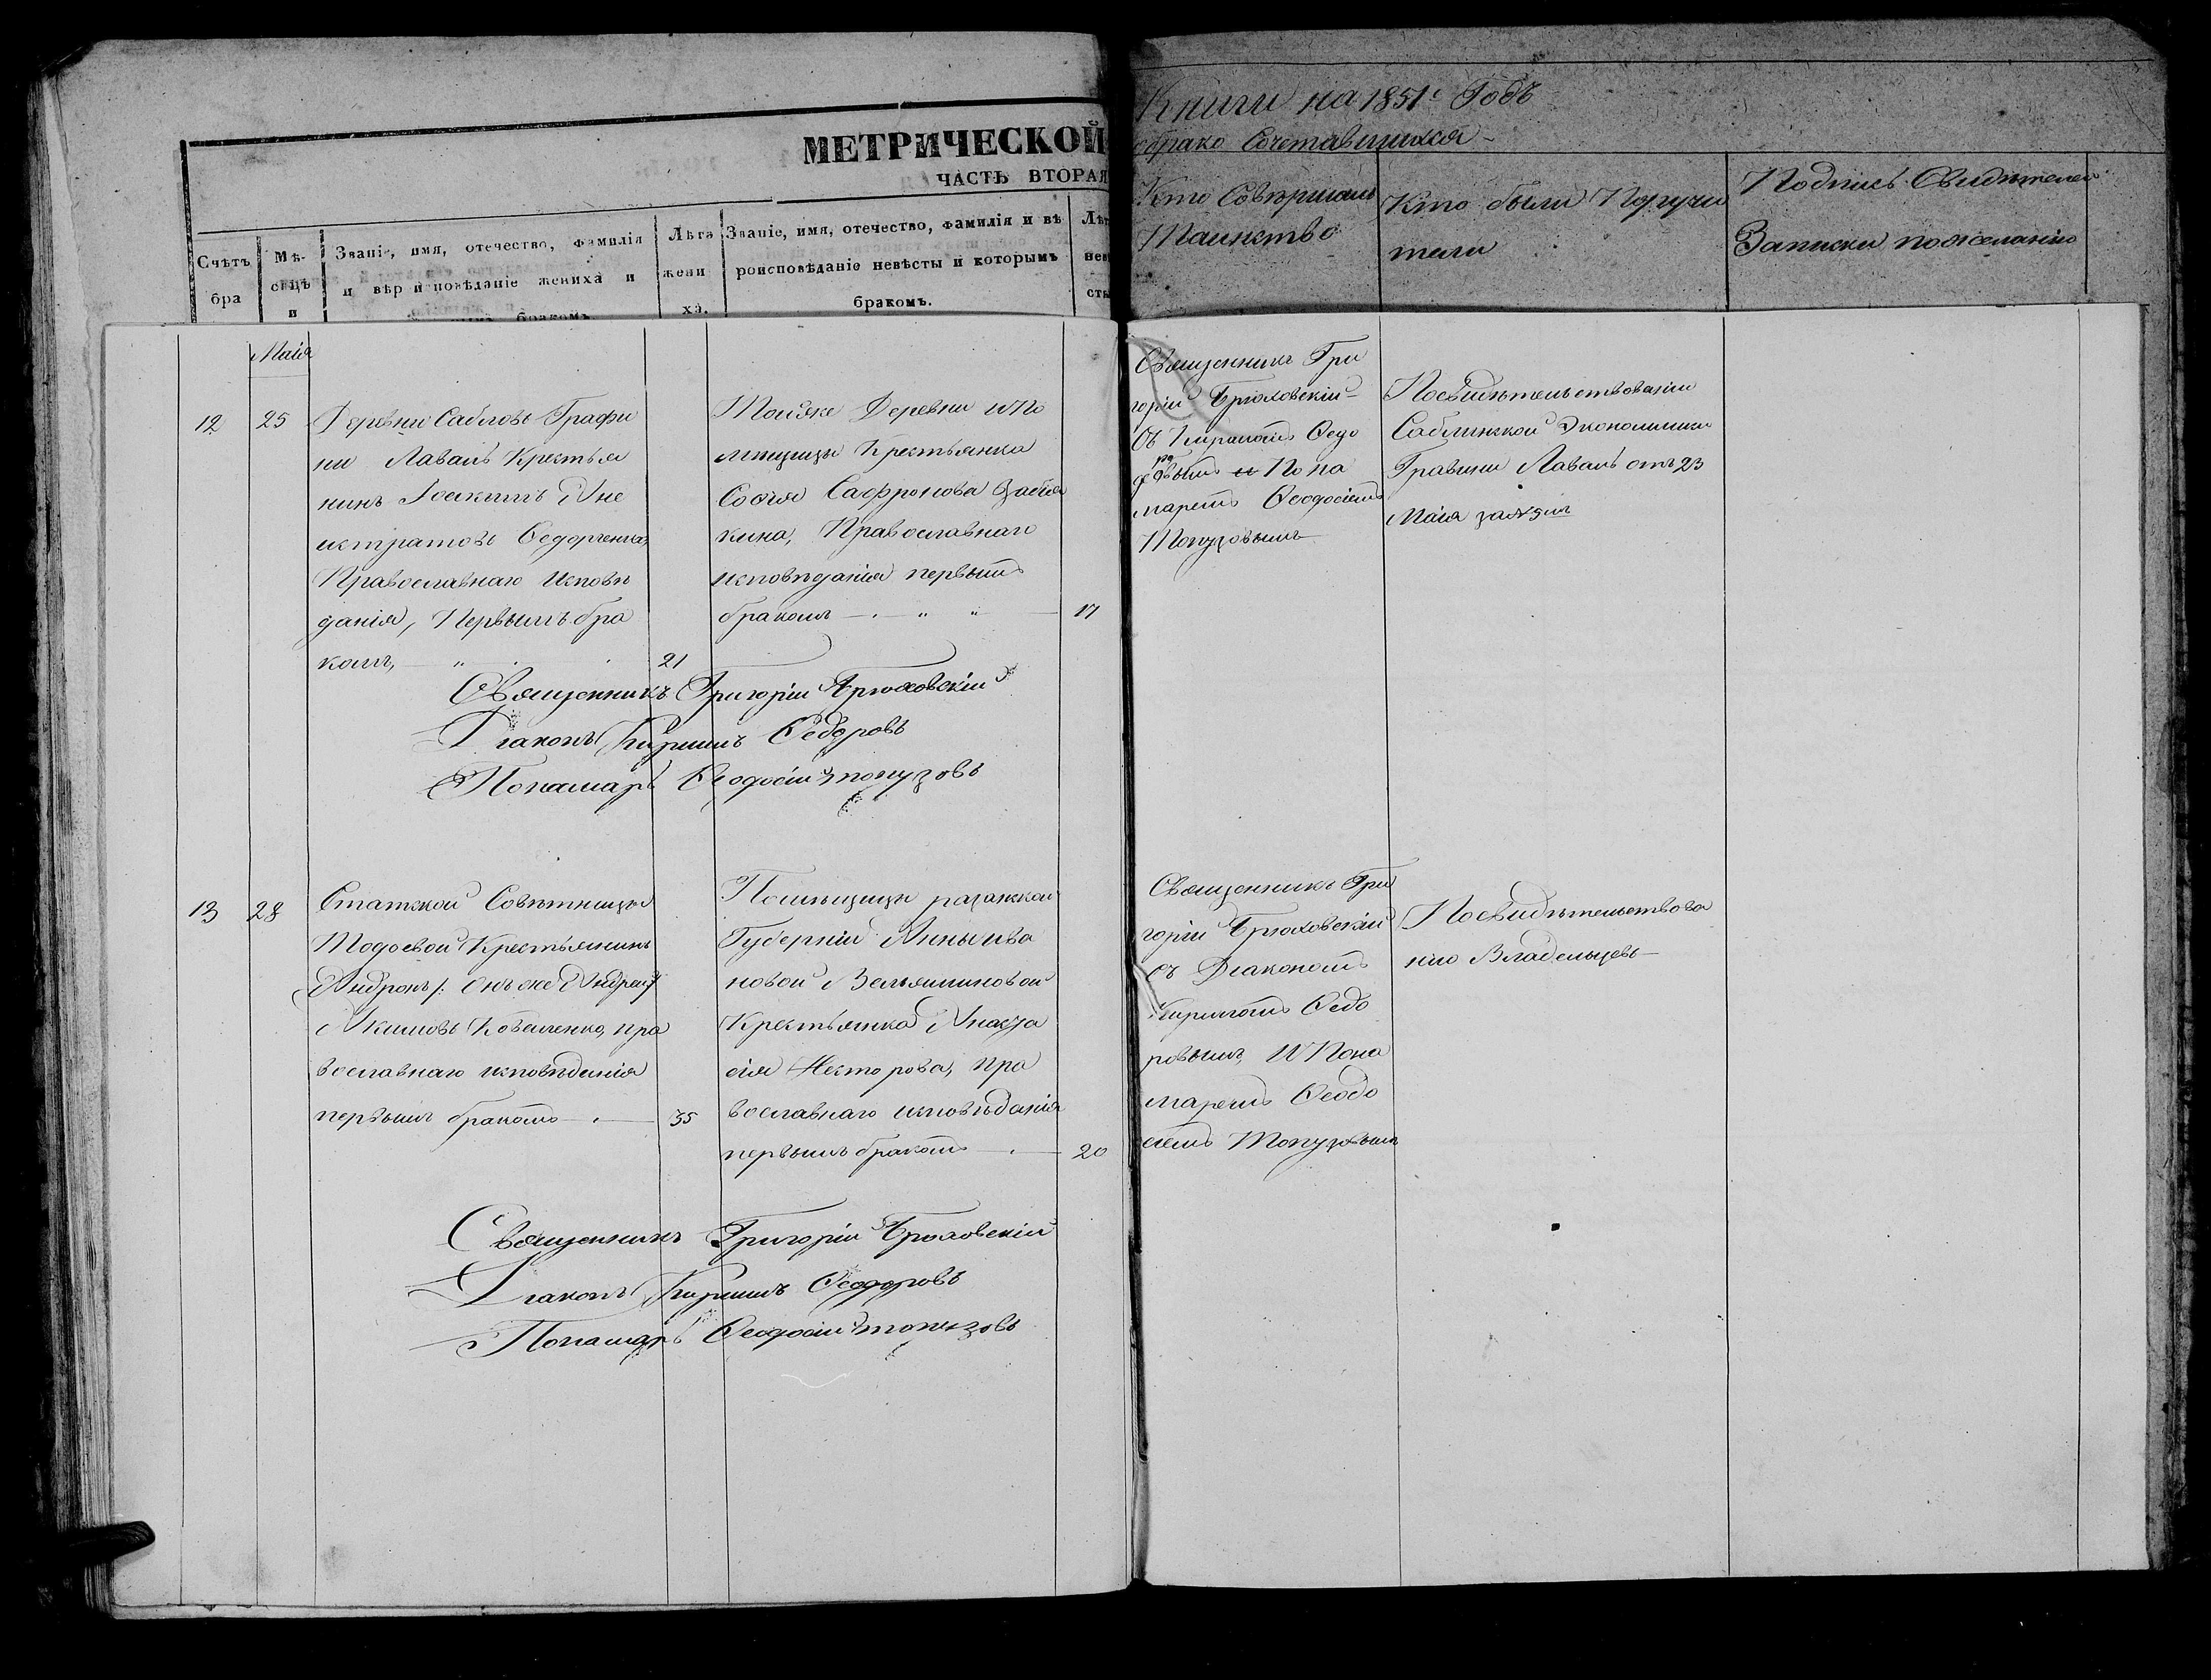 МЕТРИЧЕСКОЙ
ЧАСТЬ ВТОРАЯ
Книги на 1851й Годъ
обрако Сочетавшихся
Счѣтъ бра
Мѣ- сяцъ и
Званіе, имя, отечество, фамилія
и вѣроисповѣданіе жениха и
бракомъ.
Лѣта
жени
ха.
Званіе, имя, отечество, фамилія и вѣ
роисповѣданіе невѣсты и которымъ
бракомъ.
Лѣт
нев
сты
Кто Совершалъ
Таинство
Кто были Поручи
тели
Подпись Свидѣтелей
Записки пожеланію
Маія
12
25
Деревни Сабловъ Графи
ни Лаваль Крестья
нинъ Іоакимъ Ане
истратовъ Федорченко,
Православнаго исповѣ
данія, Первымъ бра
комъ,
21
Тойже Деревни иПо
мѣщицы Крестьянка
Софія Сафронова
кина, Православнаго
исповѣданія первымъ
бракомъ
17
Священникъ Гри
горій Брюховскій
Съ Федо
ровымъ и Пона
маремъ Феодосіемъ
Топузовымъ
Посвидѣтельствованіи
Саблинской Экономіи
Гравини Лаваль отъ 23
Маія
Священникъ Григорій Брюховскій
Діаконъ Кирилъ Федоровъ
Понамарь Феодосій топузовъ
13
28
Статской Совѣтницы
Крестьянинъ
Андронъ /: Онъ же Андрей
Акимовъ Коваленко, пра
вославнаго исповѣданія
первымъ бракомъ
35
Помѣщицы разанской
Губерніи Анны ива
новой Вельяминовой
Крестьянка Анаста
сія Нестерова, пра
вославнаго исповѣданія
первымъ бракомъ
20
Священникъ Гри
горій Брюховскій
съ Діакономъ
Кириломъ Федо
ровымъ, И Пона
маремъ Феодо
сіемъ Топузовымъ
Посвидѣтельствова
нію Владельцевъ
Священникъ Григорій Брюховскій
Діаконъ Кирилъ Феодоровъ
Понамарь Феодосій топузовъ